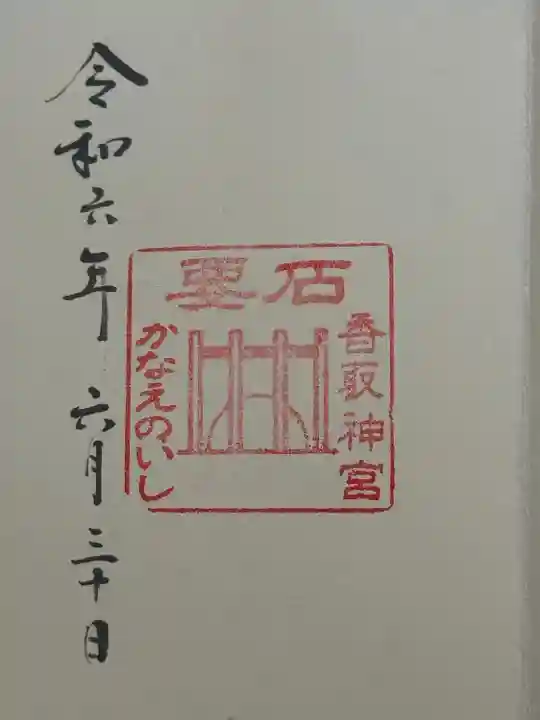 石要
香取神宮
かなえのいし
令和六年 六月三十日